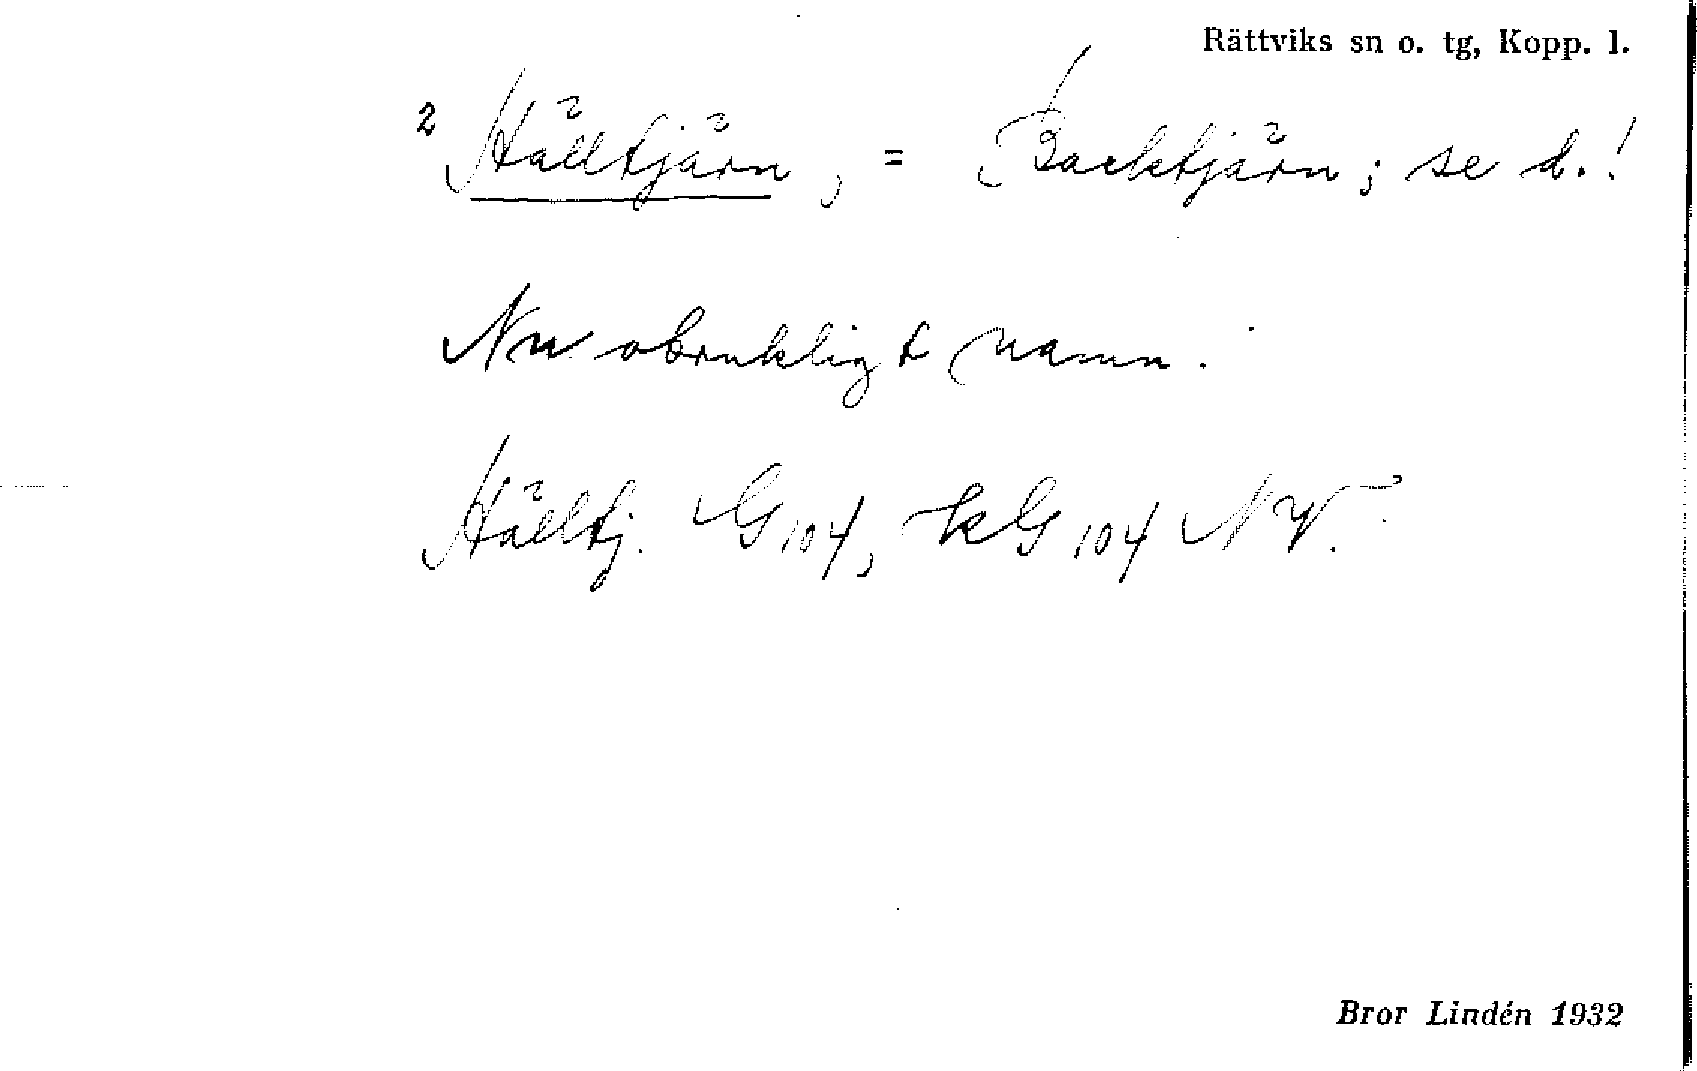 Rättviks sn o. tg, Kopp. l.
2 Hälltjärn, = Backtjärn; se d.!
Nu obrukligt namn.
Hälltj. G 104, kG 104 NV.
Bror Lindén 1932